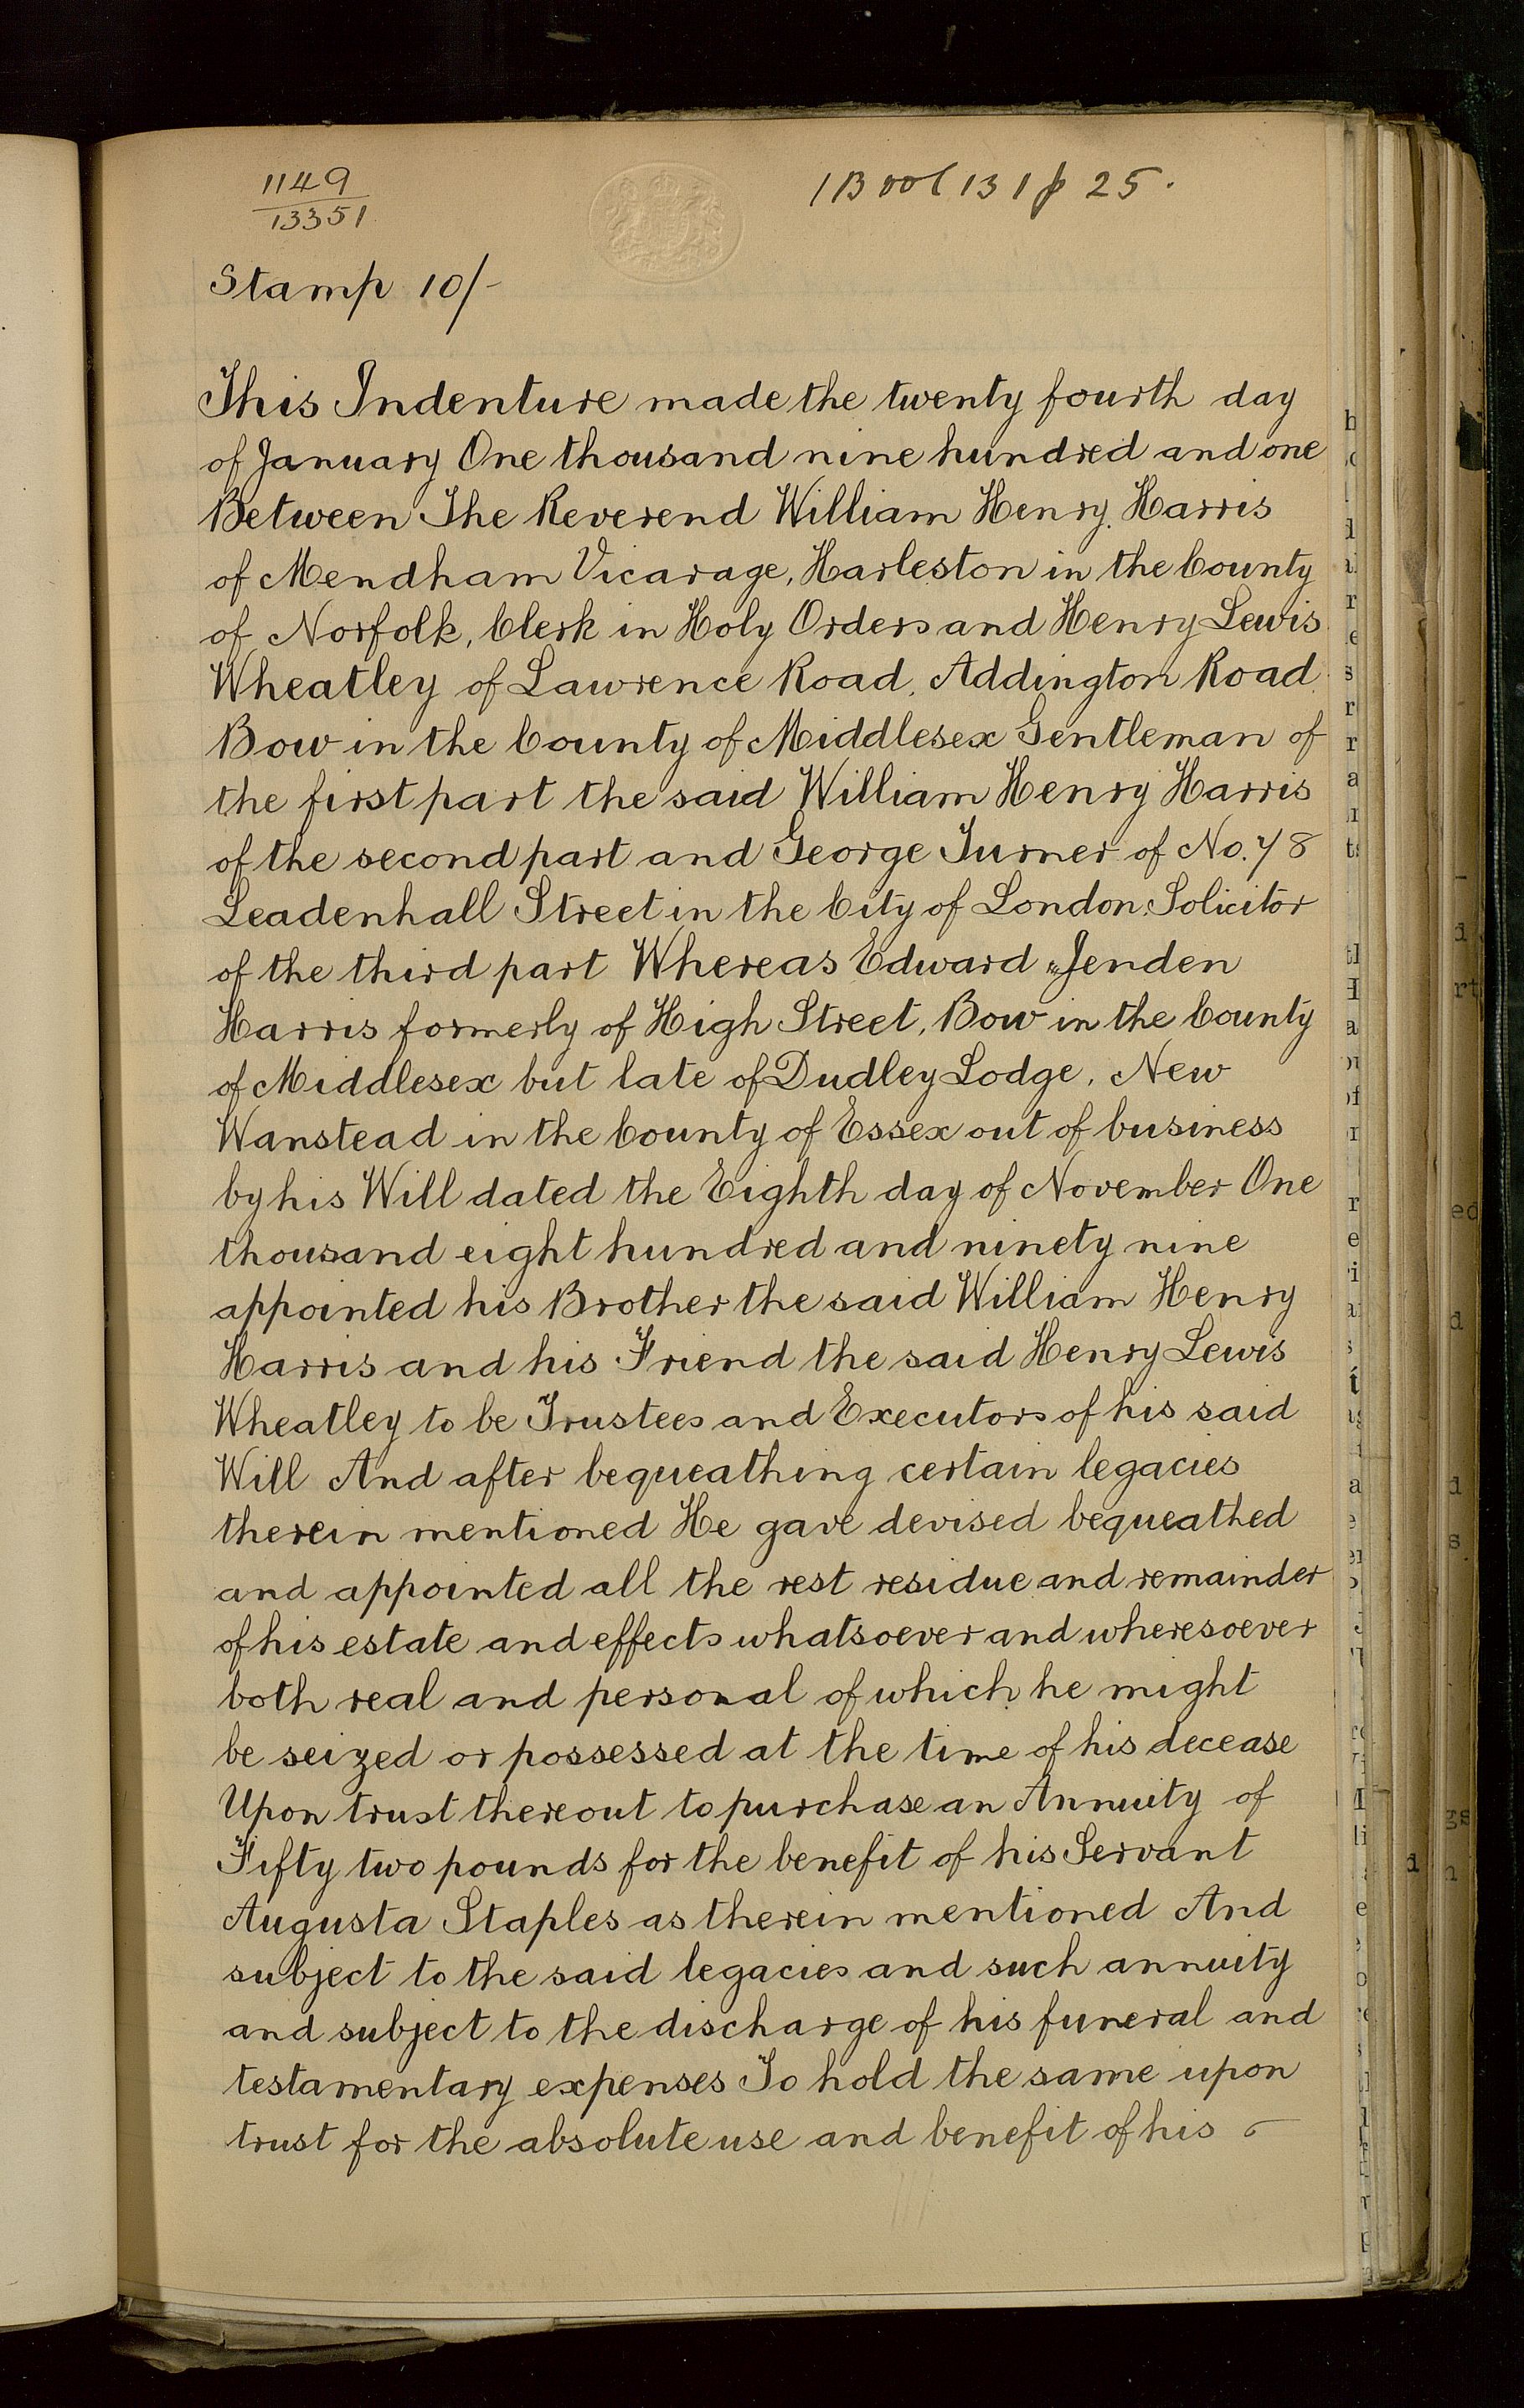 1149
13351
Book 131 p 25.
Stamp 10/-
This Indenture made the twenty fourth day
of January One thousand nine hundred and one
Between The Reverend William Henry Harris
of Mendham Vicarage, Harleston in the County
of Norfolk, Clerk in Holy Orders and Henry Lewis
Wheatley of Lawrence Road, Addington Road
Bow in the County of Middlesex Gentleman of
the first part the said William Henry Harris
of the second part and George Turner of No. 78
Leadenhall Street in the City of London, Solicitor
of the third part Whereas Edward Jenden
Harris formerly of High Street, Bow in the County
of Middlesex but late of Dudley Lodge, New
Wanstead in the County of Essex out of business
by his Will dated the Eighth day of November One
thousand eight hundred and ninety nine
appointed his Brother the said William Henry
Harris and his Friend the said Henry Lewis
Wheatley to be Trustees and Executors of his said
Will And after bequeathing certain legacies
therein mentioned He gave devised bequeathed
and appointed all the rest residue and remainder
of his estate and effects whatsoever and wheresoever
both real and personal of which he might
be seized or possessed at the time of his decease
Upon trust thereout to purchase an Annuity of
Fifty two pounds for the benefit of his Servant
Augusta Staples as therein mentioned And
subject to the said legacies and such annuity
and subject to the discharge of his funeral and
testamentary expenses To hold the same upon
trust for the absolute use and benefit of his